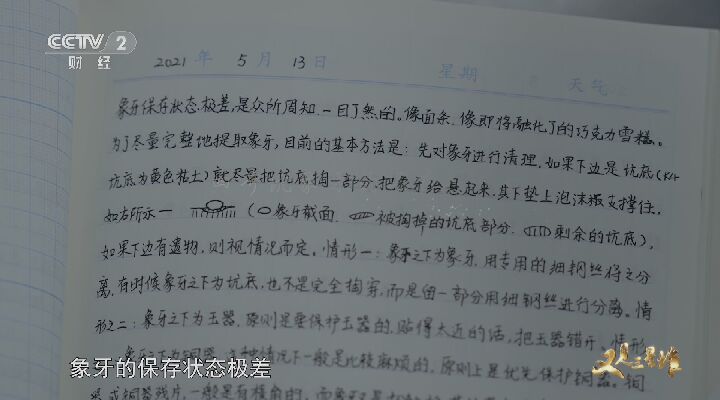 CCTV 2
财经
2021年 5月 13日 星期 天气
象牙保存状态极差,是众所周知、一目了然的。像面条、像即将融化了的巧克力雪糕。
为了尽量完整地提取象牙,目前的基本方法是:先对象牙进行清理,如果下边是坑底(K4
坑底为黄色粘土)就尽量把坑底掏一部分,把象牙给悬起来,其下垫上泡沫板支撑住。
如右所示— (象牙截面. 被掏掉的坑底部分. 剩余的坑底),
如果下边有遗物,则视情况而定。情形一:象牙之下为象牙,用专用的细钢丝将之分
离,有时候象牙之下为坑底,也不是完全掏穿,而是留一部分用细钢丝进行分离。情
形之二:象牙之下为玉器,原则是要保护玉器的,贴得太近的话,把玉器错开。情形
情况下一般是比较麻烦的,原则上是优先保护铜器。铜
象牙的保存状态极差
残片,一般是有棱角的,而象牙